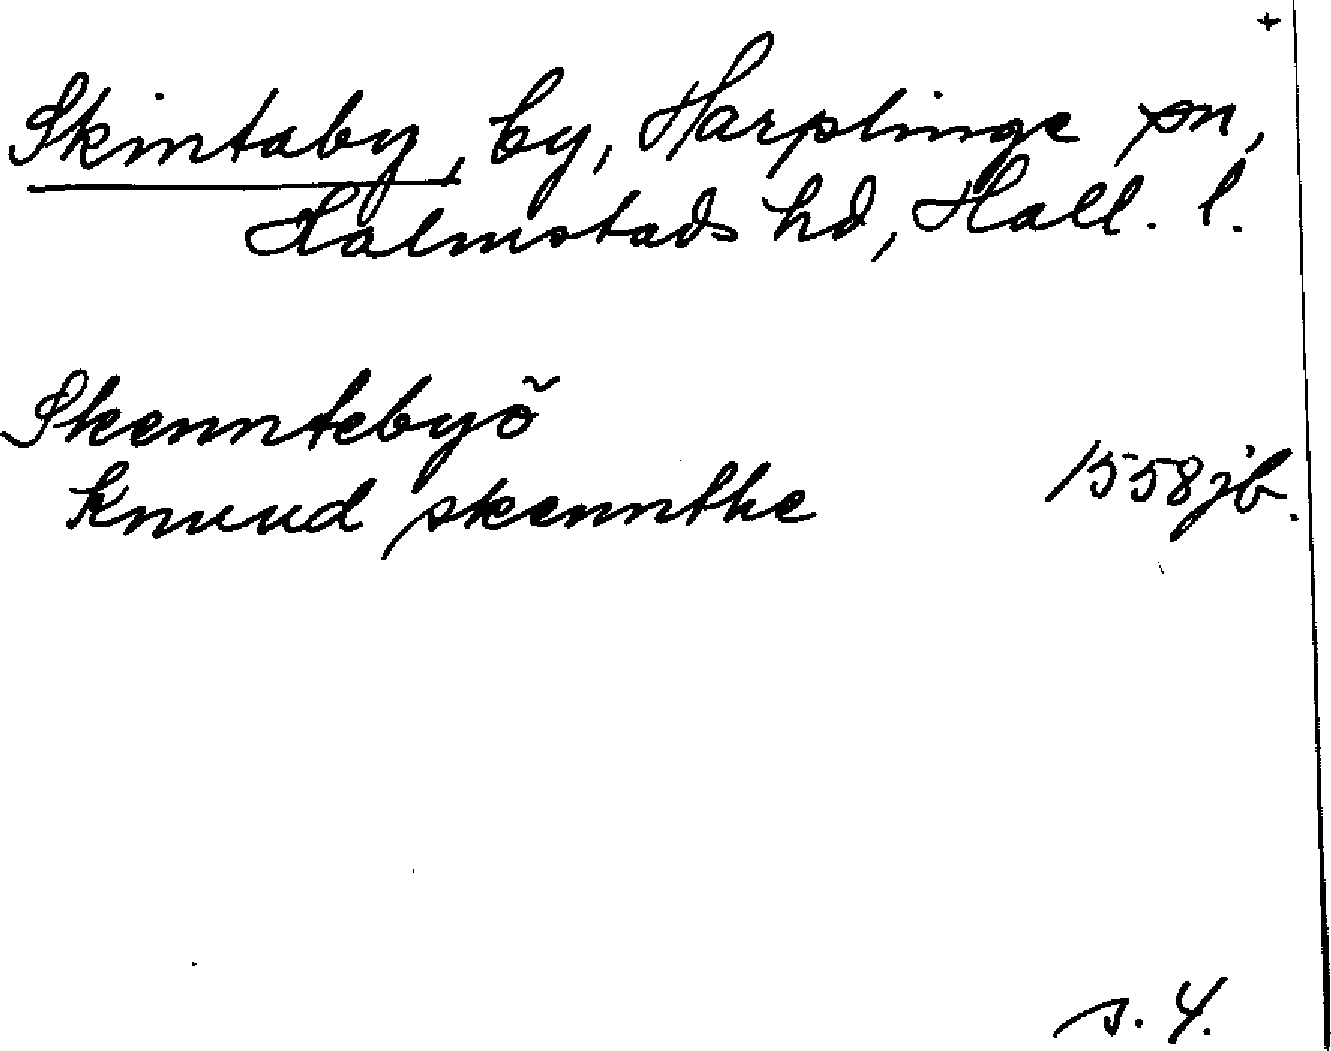 +
Skintaby, by, Harplinge sn,
Halmstads hd, Hall. l.
Skenntebyõ
Knuud skennthe 1558 jb.
s. 4.